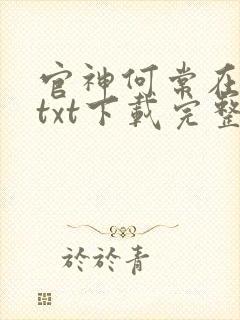 官神何常在
txt下載完整
於於青